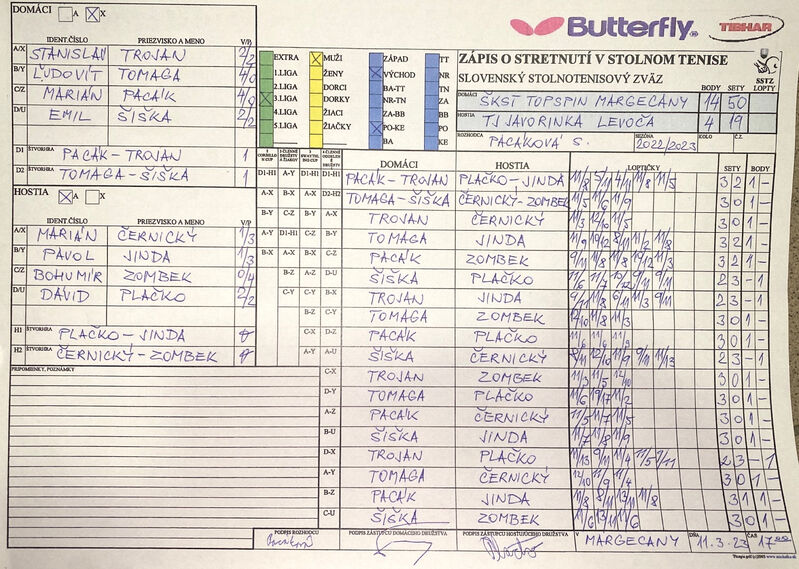 DOMÁCI A X
Butterfly TIBHAR
IDENT.ČÍSLO PRIEZVISKO A MENO V/P.
A/X STANISLAV TROJAN 2/2
B/Y ĽUDOVÍT TOMAGA 4/0
C/Z MARIÁN PACÁK
D/U EMIL ŠIŠKA 2/2
D1 ŠTVORHRA PACÁK - TROJAN 1
D2 ŠTVORHRA TOMAGA - ŠIŠKA 1
HOSTIA A X
IDENT.ČÍSLO PRIEZVISKO A MENO V/P.
A/X MARIÁN ČERNICKÝ 1/3
B/Y PAVOL JINDA 1/3
C/Z BOHUMÍR ZOMBEK 0/4
D/U DÁVID PLAČKO 2/2
H1 ŠTVORHRA PLAČKO - JINDA
H2 ŠTVORHRA ČERNICKÝ - ZOMBEK
PRIPOMIENKY, POZNÁMKY
EXTRA MUŽI ZÁPAD TT
1.LIGA ŽENY VÝCHOD NR
2.LIGA DORCI BA-TT TN
3.LIGA DORKY NR-TN ZA
4.LIGA ŽIACI ZA-BB BB
5.LIGA ŽIAČKY PO-KE PO
BA KE
ZÁPIS O STRETNUTÍ V STOLNOM TENISE
SLOVENSKÝ STOLNOTENISOVÝ ZVÄZ SSTZ
BODY SETY LOPTY
DOMÁCI ŠKST TOPSPIN MARGECANY 14 50
HOSTIA TJ JAVORINKA LEVOČA 4 19
ROZHODCA PACÁKOVÁ S. SEZÓNA 2022/2023 KOLO Č.Z.
DOMÁCI HOSTIA LOPTIČKY SETY BODY
D1-H1 A-Y D1-H1 D1-H1 PACÁK - TROJAN PLAČKO - JINDA 11/8 5/11 4/11 11/8 11/5 3 2 1 -
A-X B-X A-X D2-H2 TOMAGA - ŠIŠKA ČERNICKÝ - ZOMBEK 11/5 11/6 11/9 3 0 1 -
B-Y C-Z B-Y A-X TROJAN ČERNICKÝ 11/3 12/10 11/5 3 0 1 -
A-Y D1-H1 C-Z B-Y TOMAGA JINDA 11/9 10/12 8/11 11/2 11/8 3 2 1 -
B-X A-X B-X C-Z PACÁK ZOMBEK 9/11 11/8 11/8 10/12 11/3 3 2 1 -
B-Z A-Z D-U ŠIŠKA PLAČKO 2 3 - 1
C-Y C-Y B-X TROJAN JINDA 2 3 - 1
B-Z C-Y TOMAGA ZOMBEK 12/10 11/8 11/3 3 0 1 -
C-X D-Z PACÁK PLAČKO 11/6 11/6 11/9 3 0 1 -
A-Y A-U ŠIŠKA ČERNICKÝ 8/11 12/10 11/9 9/11 11/13 2 3 - 1
C-X TROJAN ZOMBEK 11/3 11/5 12/10 3 0 1 -
D-Y TOMAGA PLAČKO 11/6 19/17 11/2 3 0 1 -
A-Z PACÁK ČERNICKÝ 11/5 11/7 11/5 3 0 1 -
B-U ŠIŠKA JINDA 11/7 11/8 11/9 3 0 1 -
D-X TROJAN PLAČKO 11/13 9/11 11/4 11/5 7/11 2 3 - 1
A-Y TOMAGA ČERNICKÝ 12/10 11/9 11/4 3 0 1 -
B-Z PACÁK JINDA 11/8 8/11 13/11 11/8 3 1 1 -
C-U ŠIŠKA ZOMBEK 11/6 13/11 11/6 3 0 1 -
PODPIS ROZHODCU PODPIS ZÁSTUPCU DOMÁCEHO DRUŽSTVA PODPIS ZÁSTUPCU HOSŤUJÚCEHO DRUŽSTVA V MARGECANY DŇA 11.3.23 ČAS 17 00